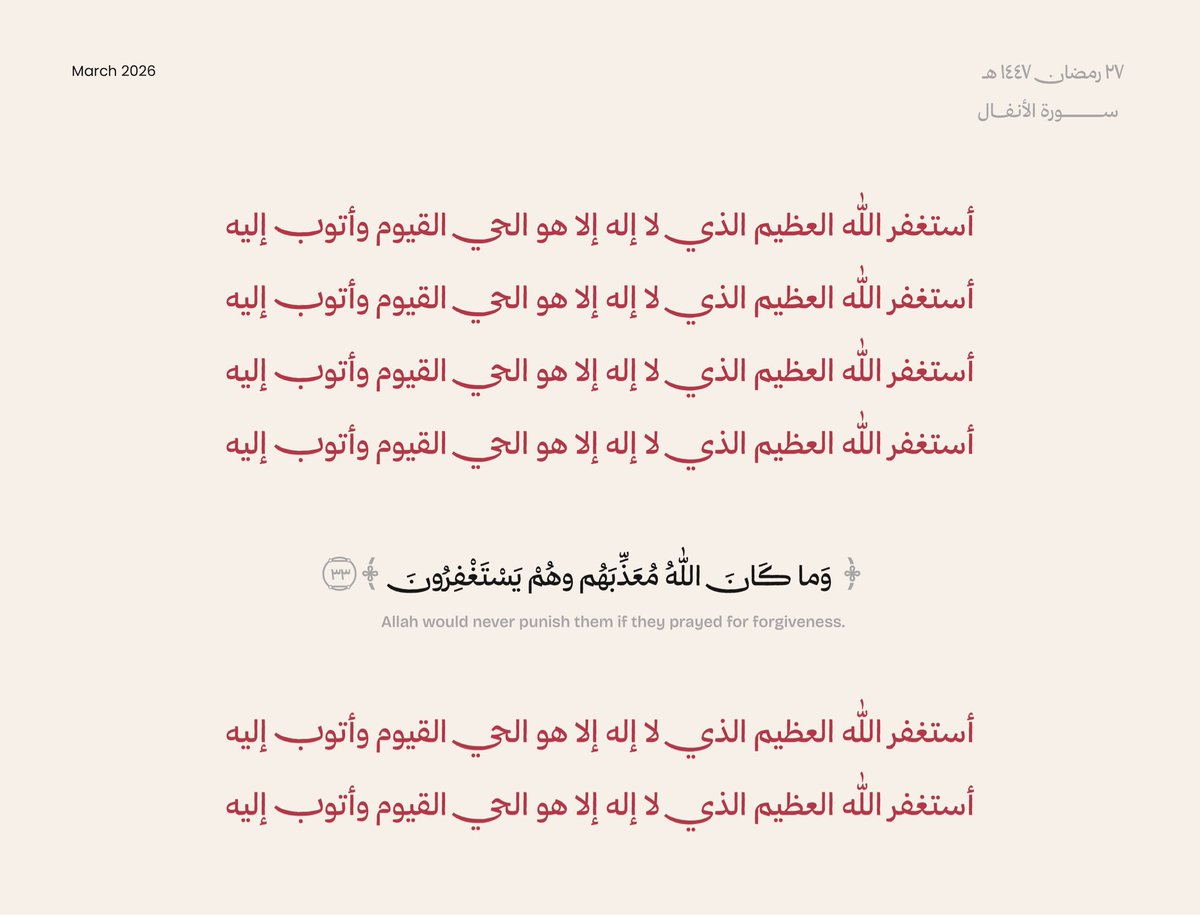 March 2026
٢٧ رمضان ١٤٤٧ هـ
ســـورة الأنفـال
أستغفر الله العظيم الذي لا إله إلا هو الحي القيوم وأتوب إليه
أستغفر الله العظيم الذي لا إله إلا هو الحي القيوم وأتوب إليه
أستغفر الله العظيم الذي لا إله إلا هو الحي القيوم وأتوب إليه
أستغفر الله العظيم الذي لا إله إلا هو الحي القيوم وأتوب إليه
﴿ وَما كَانَ اللَّهُ مُعَذِّبَهُم وهُمْ يَسْتَغْفِرُونَ ﴾ ٣٣
Allah would never punish them if they prayed for forgiveness.
أستغفر الله العظيم الذي لا إله إلا هو الحي القيوم وأتوب إليه
أستغفر الله العظيم الذي لا إله إلا هو الحي القيوم وأتوب إليه